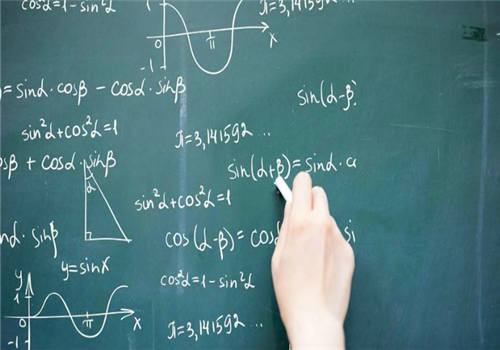 cosα=1-sin²α
π=3,141592 ...
π
x
-1
)=sinα·cosβ - cosα·sinβ
sin(α-β)
sin²α+cos²α=1
π=3,141592 ...
sβ + cosα·sinβ
sin(α+β)=sinα·c
α
sin²α+cos²α=1
nα·sinβ
cos(α-β)=cosα si
y=sinx
cos²α=1-sin²α
y
1
π
x
-1
π=3,141592 ...